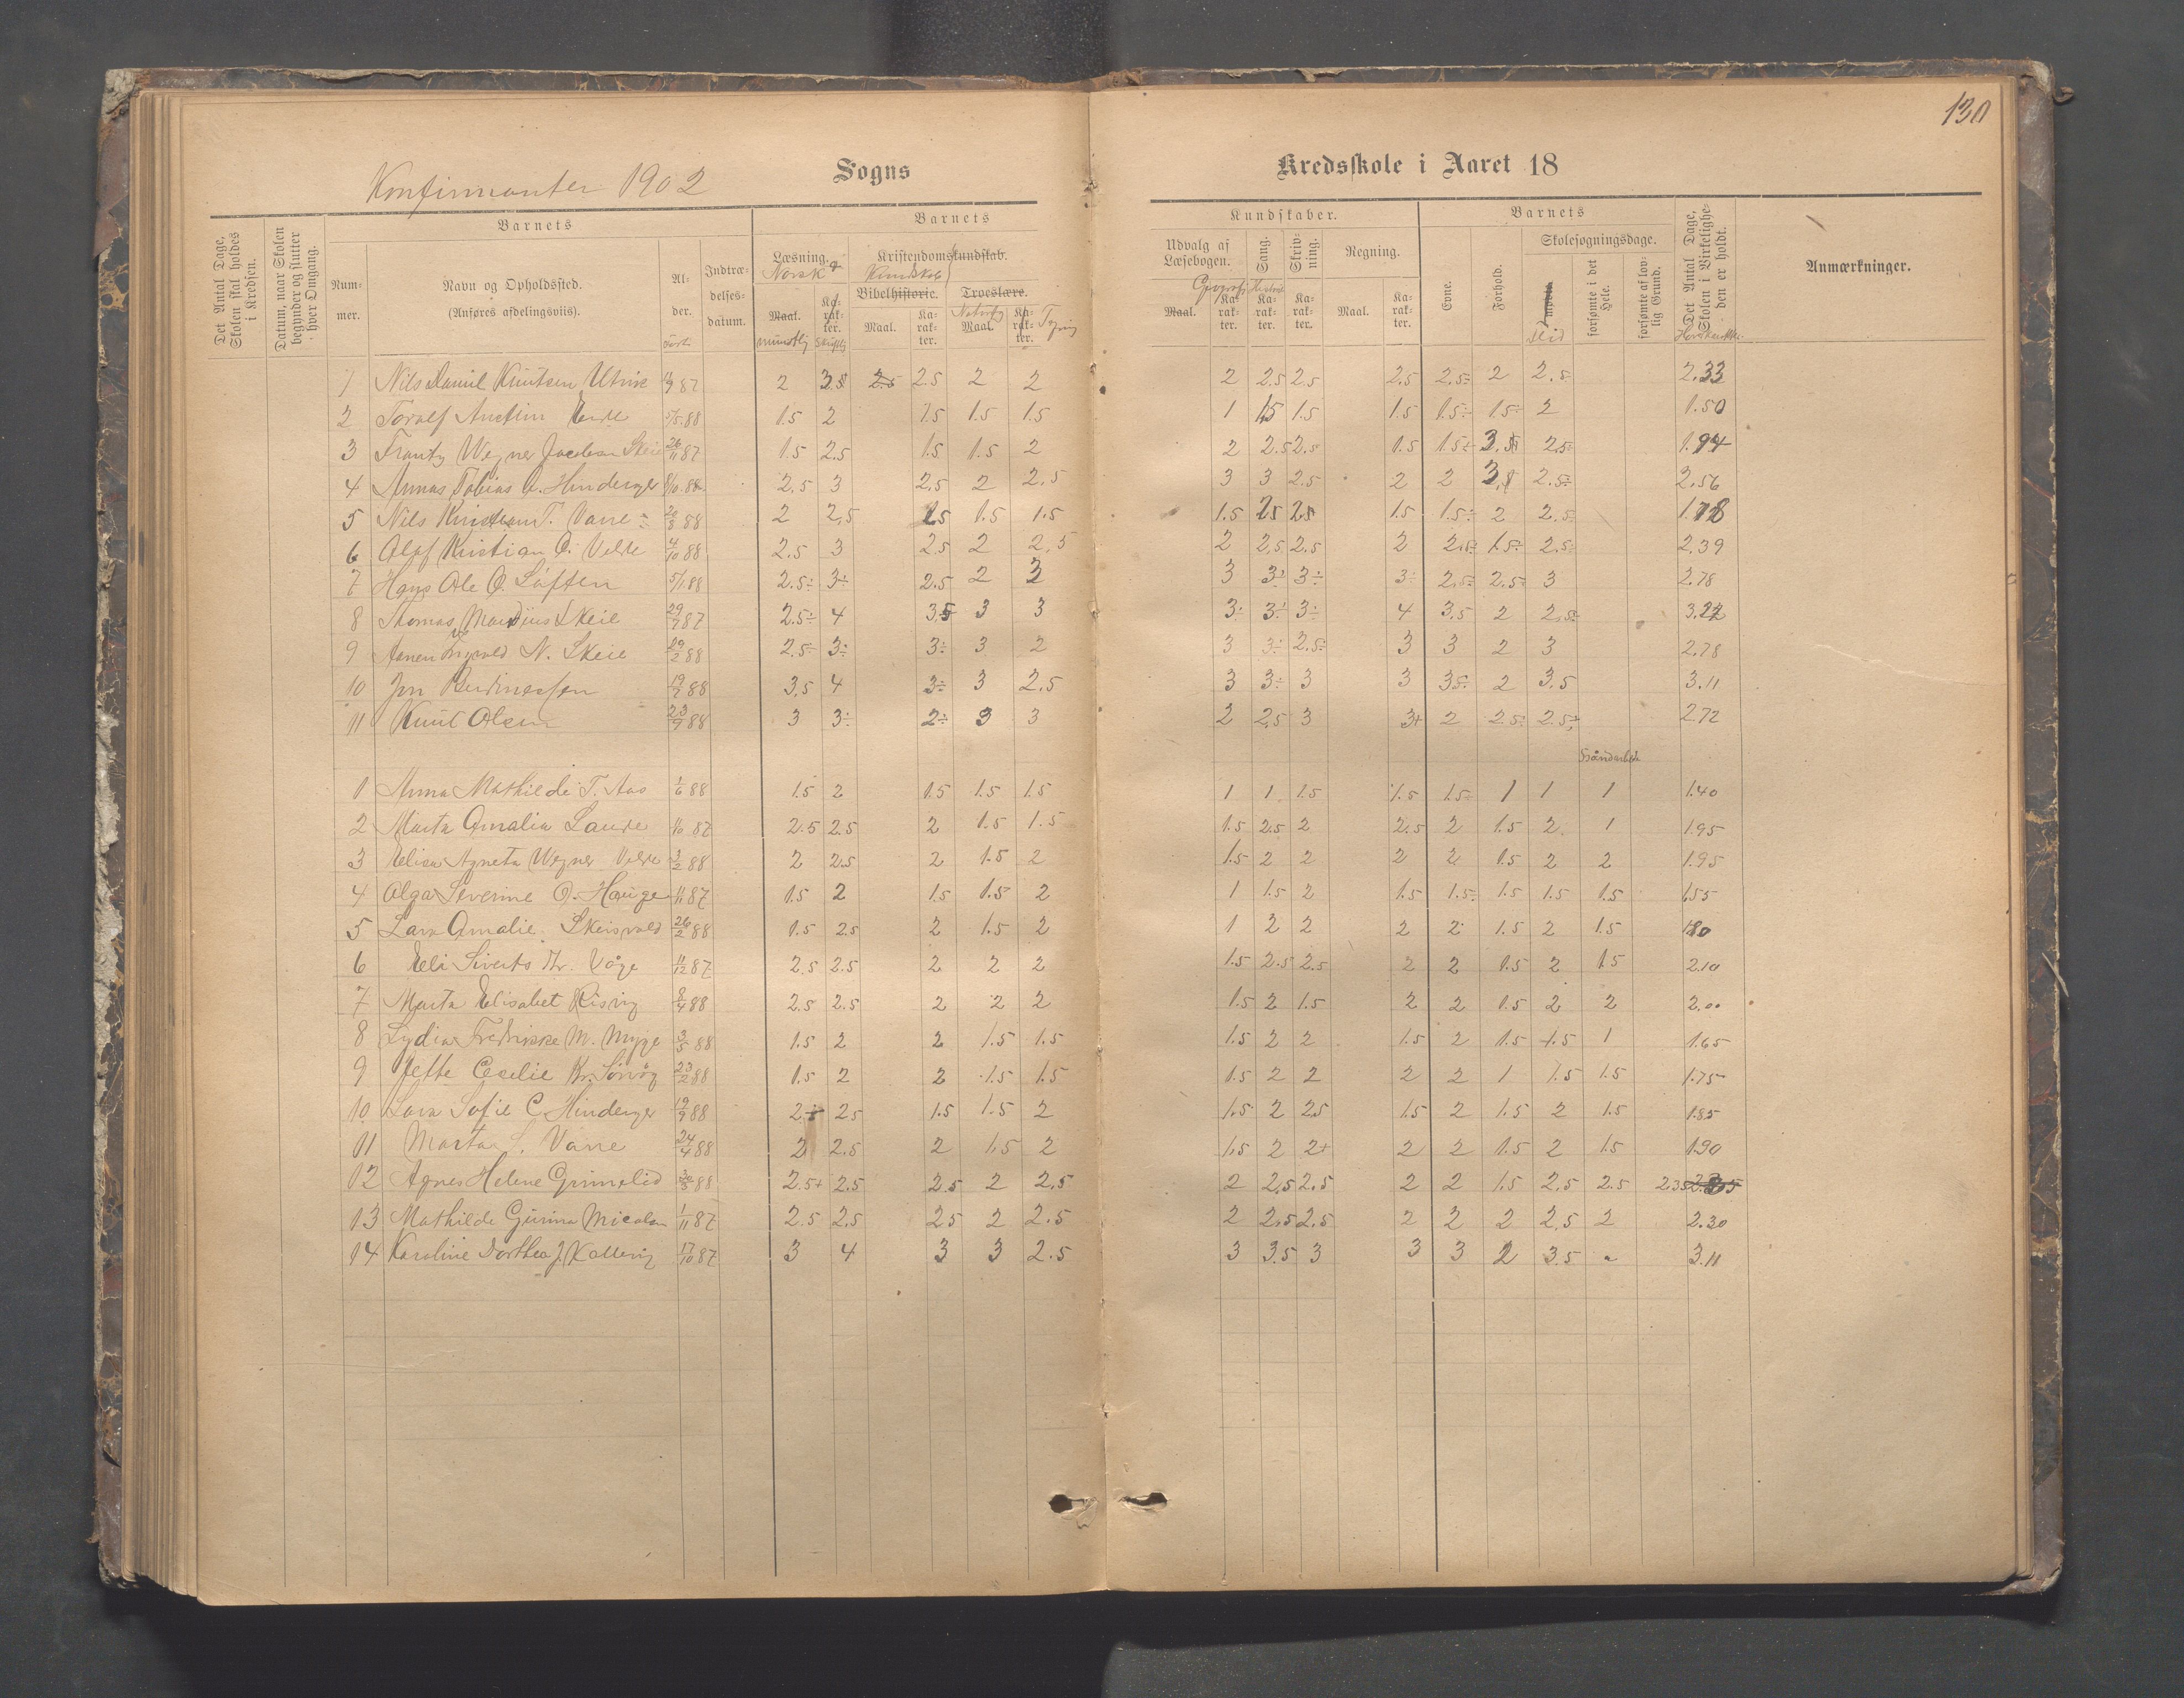 130
Konfirmanter 1902 Sogns Kredsskole i Aaret 18
Det Antal Dage, Skolen skal holdes i Kredsen.
Datum, naar Skolen begynder og slutter hver Omgang.
Barnets
Nummer.
Navn og Opholdssted.
(Anføres afdelingsviis).
Alder.
Indtrædelsesdatum.
Barnets Kundskaber.
Læsning. Norsk
Maal. mundtlig
Karakter. skriftlig
Kristendomskundskab. Kundskab
Bibelhistorie.
Maal.
Karakter.
Troeslære.
Maal.
Karakter.
Udvalg af Læsebogen.
Geografi Historie
Maal.
Karakter.
Sang.
Karakter.
Skrivning.
Karakter.
Regning.
Maal.
Karakter.
Barnets
Evne.
Forhold.
Skolesøgningsdage.
mødte
forsømte i det Hele.
forsømte af lovlig Grund.
Det Antal Dage, Skolen i Virkeligheden er holdt.
Anmærkninger.
1 Nils Knutsen Utvik 87 2 3.5 2.5 2.5 2 2 2 2.5 2.5 2.5 2.5÷ 2 2.5 2.33
2 Toralf Austin Eide 5/5.88 1.5 2 1.5 1.5 1.5 1 1.5 1.5 1.5 1.5÷ 1.5÷ 2 1.50
3 Frantz Wegner Jacobsen Skeie 26/11 87 1.5 2.5 1.5 1.5 2 2 2.5 2.5 1.5 1.5÷ 3.5 2.5÷ 1.94
4 Annas Tobias Hinderøer 88 2.5 3 2.5 2 2.5 3 3 2.5 2 2 3 2.5÷ 2.56
5 Nils Kristian T. Vane 20/3 88 2 2.5 1.5 1.5 1.5 1.5 2.5 2.5 1.5 1.5÷ 2 2.5÷ 1.78
6 Olaf Kristian O. Velde 4/10 88 2.5 3 2.5 2 2.5 2 2.5 2.5 2 2.5÷ 1.5÷ 2.5÷ 2.39
7 Hans Ole O. Løften 5/1.88 2.5÷ 3÷ 2.5 2 3 3 3÷ 3÷ 3÷ 2.5÷ 2.5÷ 3 2.78
8 Thomas Mardius Skeie 29/7 87 2.5÷ 4 3.5 3 3 3÷ 3÷ 3÷ 4 3.5 2 2.5÷ 3.22
9 Trygvald N. Skeie 29/2 88 2.5÷ 3÷ 3÷ 3 2 3 3÷ 2.5÷ 3 3 2 3 2.78
10 Jon 19/7 88 3.5 4 3÷ 3 2.5 3 3÷ 3 3 3.5÷ 2 3.5 3.11
11 Knut Olsen 23/9 88 3 3÷ 2÷ 3 3 2 2.5 3 3+ 2 2.5÷ 2.5÷ 2.72
Håndarbeide
1 Anna Mathilde T. Aas 1/6 88 1.5 2 1.5 1.5 1.5 1 1 1.5 1.5 1.5÷ 1 1 1 1.40
2 Marta Amalia Lande 87 2.5 2.5 2 1.5 1.5 1.5 2.5 2 2.5 2 1.5 2 1 1.95
3 Elisa Agneta Wegner Velde 3/2 88 2 2.5 2 1.5 2 1.5 2 2 2 2 1.5 2 2 1.95
4 Olga Severine O. Hauge 87 1.5 2 1.5 1.5 2 1 1.5 2 1.5 1.5÷ 1.5 1.5 1.5 1.55
5 Lara Amalie Skeisvold 26/2 88 1.5 2.5 2 1.5 2 1 2 2 2 2 1.5 2 1.5 1.80
6 Eli Siverts Dtr. Våge 11/12 87 2.5 2.5 2 2 2 1.5 2.5 2.5 2 2 1.5 2 1.5 2.10
7 Marta Elisabet Risvig 8/4 88 2.5 2.5 2 2 2 1.5 2 1.5 2 2 1.5 2 2 2.00
8 Lydia Fredrikke M. Mygge 3/5 88 1.5 2 2 1.5 1.5 1.5 2 2 1.5 2 1.5 1.5 1 1.65
9 Jette Cecilie Kr. Sørvåg 23/2 88 1.5 2 2 1.5 1.5 1.5 2 2 2 2 1 1.5 1.5 1.75
10 Lara Sofie C Hinderøer 19/9 88 2÷ 2.5 1.5 1.5 2 1.5 2 2.5 1.5 2 1.5 2 1.5 1.85
11 Marta S. Vane 24/4 88 2 2.5 2 1.5 2 1.5 2 2+ 2 2 1.5 2 1.5 1.90
12 Agnes Helene Grimelid 88 2.5+ 2.5 2.5 2 2.5 2 2.5 2.5 2 2 1.5 2.5 2.5 2.35
13 Mathilde Gurina Micalsen 1/11 87 2.5 2.5 2.5 2 2.5 2 2.5 2.5 2 2 2 2.5 2 2.30
14 Karoline Dorthea J. Kallevig 17/10 87 3 4 3 3 2.5 3 3.5 3 3 3 2 3.5 3.11